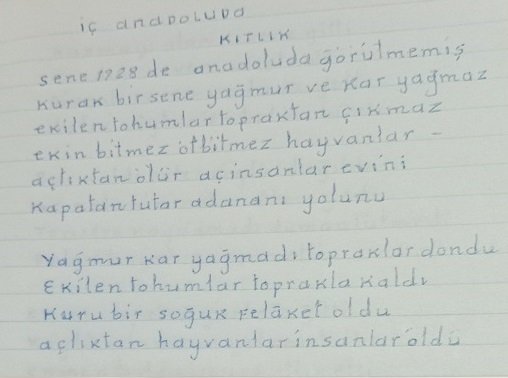 iç anadoluda
KITLIK
sene 1928 de anadoluda görülmemiş
kurak bir sene yağmur ve kar yağmaz
ekilen tohumlar topraktan çıkmaz
ekin bitmez ot bitmez hayvanlar -
açlıktan ölür aç insanlar evini
kapatan tutar adananı yolunu
Yağmur kar yağmadı topraklar dondu
Ekilen tohumlar toprakla kaldı
kuru bir soğuk felâket oldu
açlıktan hayvanlar insanlar öldü